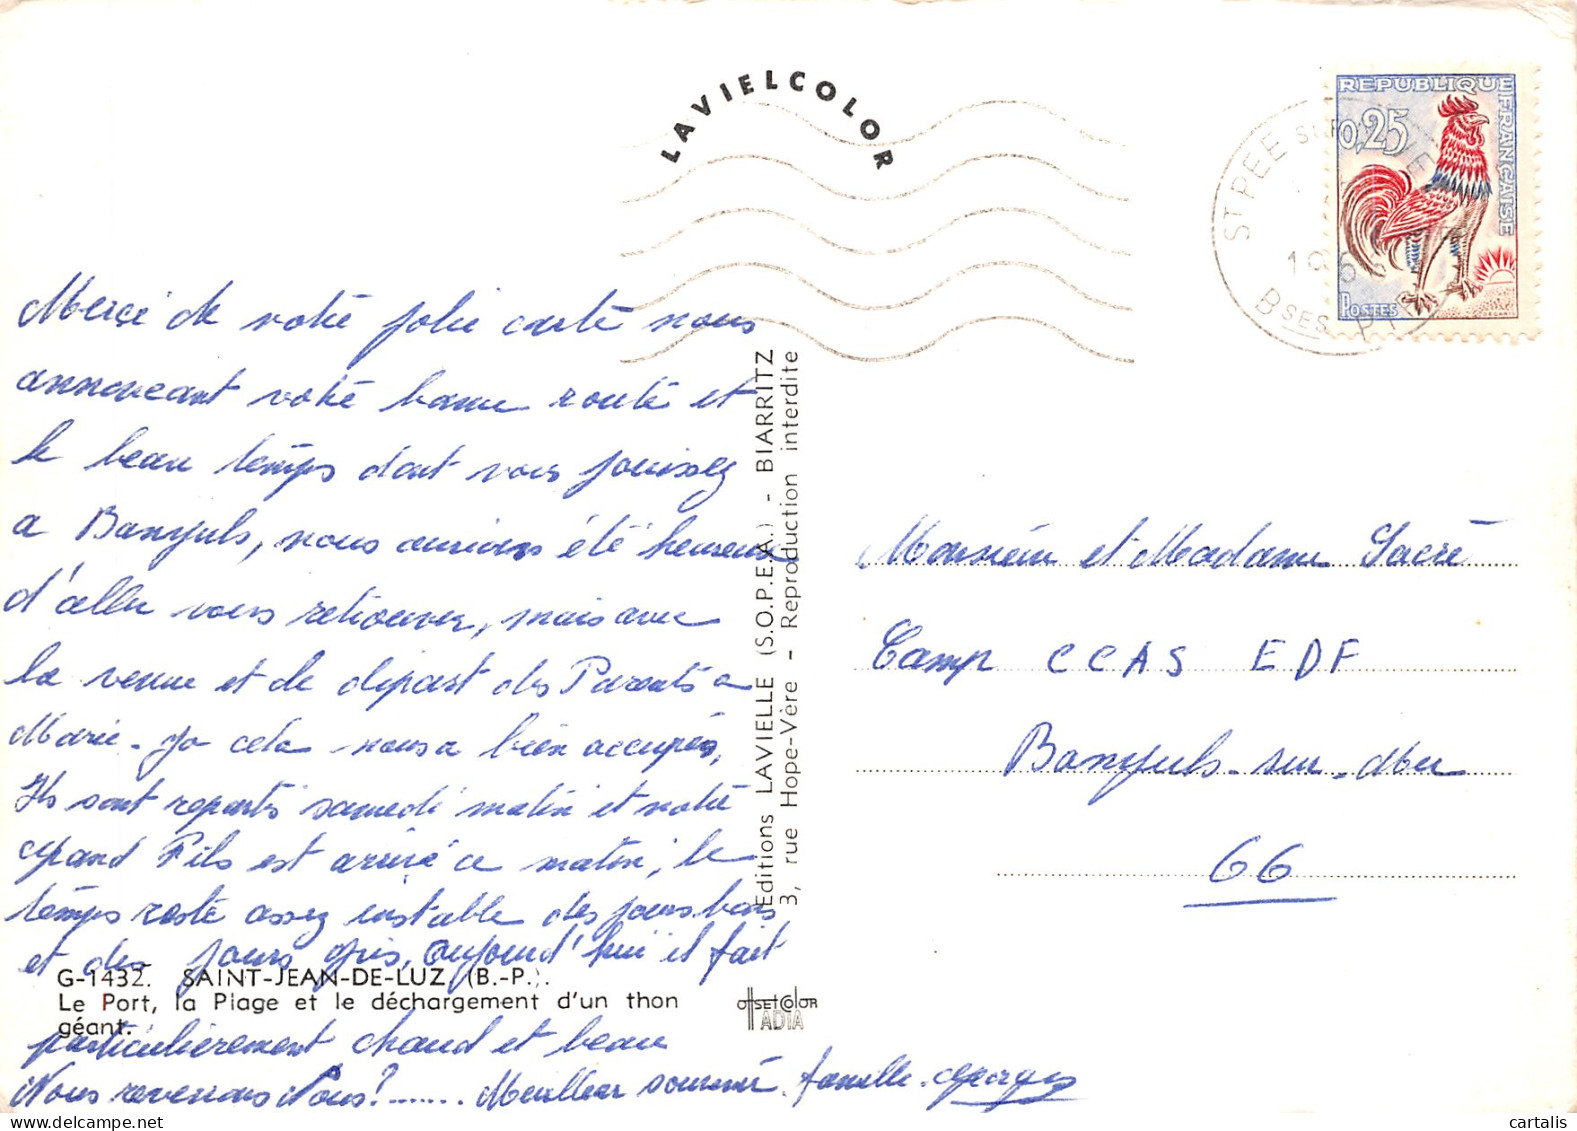 LAVIELCOLOR
REPUBLIQUE FRANÇAISE
0,25
POSTES
ST PEE SUR
Bses P
Merçi de votre jolie carte nous
annonçant votre bonne route et
le beau temps dont vous jouissez
a Banyuls, nous aurions été heureux
d'aller vous retrouver, mais avec
la venue et le départ des Parents a
Marie-Jo cela nous a bien occupés,
Ils sont repartis samedi matin et notre
grand Fils est arrivé ce matin, le
temps reste assez instable des jours bons
et des jours gris, aujourd'hui il fait
particulièrement chaud et beau
Nous reverrons Nous?........ Meilleur souvenir. famille. Georges
G-1432. SAINT-JEAN-DE-LUZ (B.-P.).
Le Port, la Plage et le déchargement d'un thon
géant.
Editions LAVIELLE (S.O.P.E.A.) - BIARRITZ
3, rue Hope-Vère - Reproduction interdite
OFFSET COLOR
IADIA
Monsieur et Madame Sacré
Camp CCAS EDF
Banyuls-sur-Mer
66
cartalis